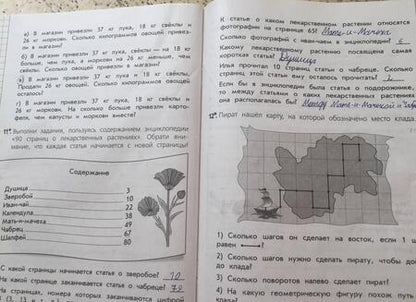 а) В магазин привезли 37 кг лука, 18 кг свёклы и
26 кг моркови. Сколько килограммов овощей привез-
ли в магазин?
б) В магазин привезли 37 кг лука, свёклы — на 18 кг
больше, чем лука, а моркови на 26 кг меньше, чем
свёклы. Сколько овощей привезли в магазин?
в) В магазин привезли 37 кг лука и 18 кг свёклы.
Продали 26 кг овощей. Сколько килограммов овощей
осталось?
г) В магазин привезли 37 кг лука, 18 кг свёклы и
26 кг моркови. На сколько больше привезли карто-
феля, чем капусты и моркови вместе?
11* Выполни задания, пользуясь содержанием энциклопедии
«90 страниц о лекарственных растениях». Обрати вни-
мание, что каждая статья начинается с новой страницы!
Содержание
Душица 3
Зверобой 10
Иван-чай 22
Календула 38
Мать-и-мачеха 49
Чабрец 67
Шалфей 80
С какой страницы начинается статья о зверобое? 10
На какой странице заканчивается статья о чабреце? 79
На страницах, номера которых заканчиваются цифрой
К статье о каком лекарственном растении относятся
фотографии на странице 65? Мать-и-Мачеха
Сколько фотографий с иван-чаем в энциклопедии? 6
Какому лекарственному растению посвящена самая
короткая статья? Душица
Илья прочитал 10 страниц статьи о чабреце. Сколько
страниц этой статьи ему осталось прочитать? 2
Если бы в энциклопедии была статья о подорожнике,
то между статьями о каких лекарственных растениях
она располагалась бы? Между Мать-и-Мачехой и Чабр
12* Пират нашёл карту, на которой обозначено место клада.
1) Сколько шагов он сделает на восток, если 1 ш
равен
2) Сколько шагов нужно сделать пирату, чтобы до
до клада?
3) Сколько поворотов налево сделает пират!
4) На какую геометрическую фигуру похож путь